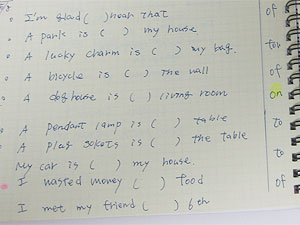 I'm glad ( ) hear that
A park is ( ) my house
A lucky charm is ( ) my bag.
A bicycle is ( ) the wall
A doghouse is ( ) living room
A pendant lamp is ( ) table
A plug sokets is ( ) the table
My car is ( ) my house
I wasted money ( ) food
I met my friend ( ) 6th
of
for
of
on
to
to
of